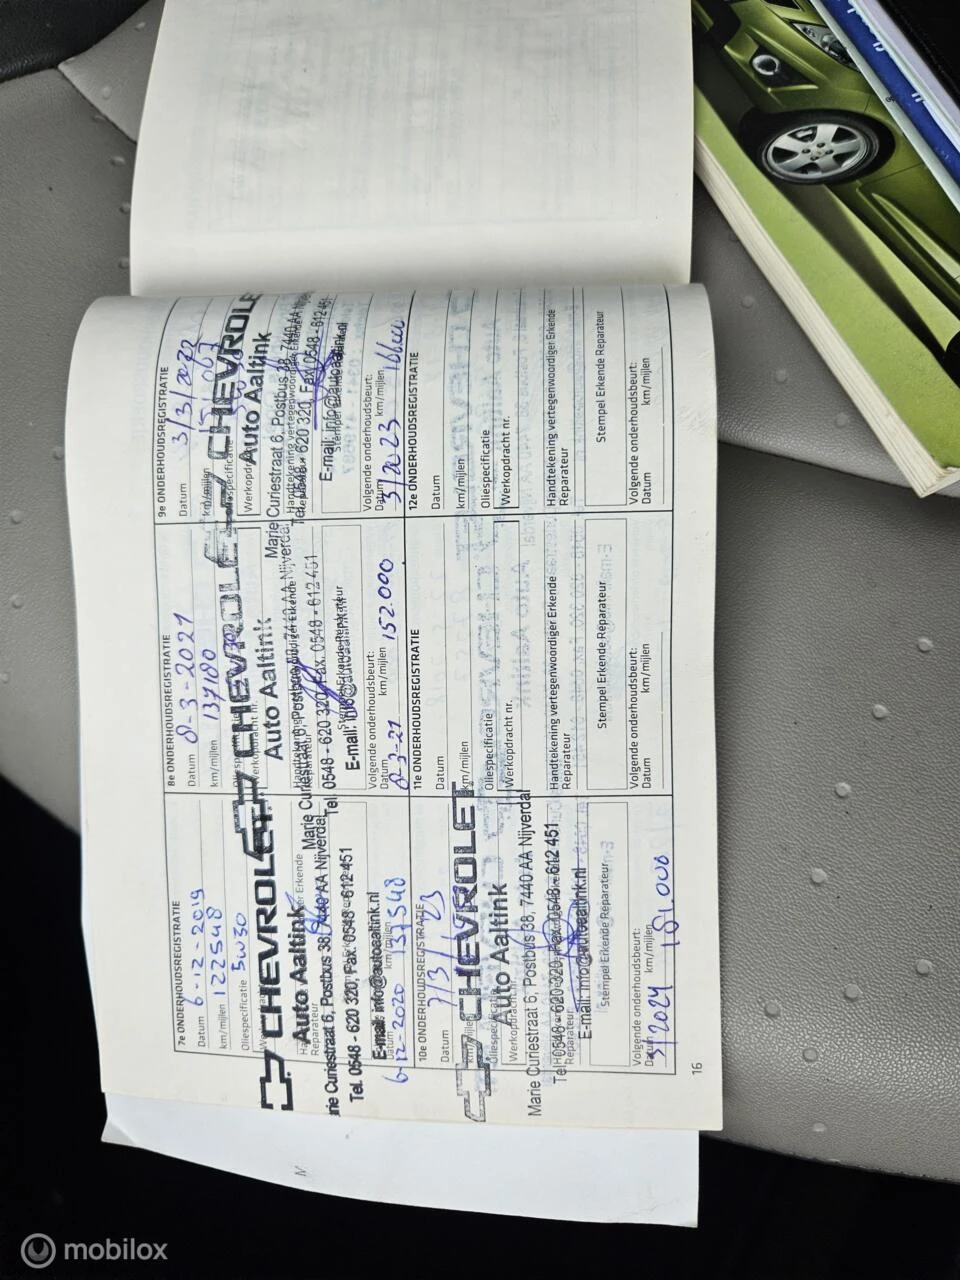 7e ONDERHOUDSREGISTRATIE
Datum 6-12-2019
km/mijlen 122548
Oliespecificatie 5w30
CHEVROLET
Auto Aaltink
Reparateur
Marie Curiestraat 6, Postbus 38, 7440 AA Nijverdal
Tel. 0548 - 620 320, Fax. 0548 - 612 451
E-mail: info@autoaaltink.nl
km/mijlen
6-12-2020 137548
8e ONDERHOUDSREGISTRATIE
Datum 8-3-2021
km/mijlen 137180
CHEVROLET
Auto Aaltink
Reparateur
Marie Curiestraat 6, Postbus 38, 7440 AA Nijverdal
Tel. 0548 - 620 320, Fax. 0548 - 612 451
Stempel Erkende Reparateur
E-mail: info@autoaaltink.nl
Volgende onderhoudsbeurt:
Datum km/mijlen 152.000
8-3-21
9e ONDERHOUDSREGISTRATIE
Datum 3/3/2022
km/mijlen
Oliespecificatie
CHEVROLET
Werkopdracht
Auto Aaltink
Marie Curiestraat 6, Postbus 38, 7440 AA Nijverdal
Handtekening vertegenwoordiger Erkende
Tel. 0548 - 620 320, Fax. 0548 - 612 451
E-mail: info@autoaaltink.nl
Volgende onderhoudsbeurt:
Datum km/mijlen
3/2023
10e ONDERHOUDSREGISTRATIE
Datum
km/mijlen
CHEVROLET
Oliespecificatie
Auto Aaltink
Werkopdracht nr.
Marie Curiestraat 6, Postbus 38, 7440 AA Nijverdal
Tel. 0548 - 620 320, Fax. 0548 - 612 451
Reparateur
E-mail: info@autoaaltink.nl
Stempel Erkende Reparateur
Volgende onderhoudsbeurt:
Datum km/mijlen
3/2024 181.000
11e ONDERHOUDSREGISTRATIE
Datum
km/mijlen
Oliespecificatie
Werkopdracht nr.
Handtekening vertegenwoordiger Erkende
Reparateur
Stempel Erkende Reparateur
Volgende onderhoudsbeurt:
Datum km/mijlen
12e ONDERHOUDSREGISTRATIE
Datum
km/mijlen
Oliespecificatie
Werkopdracht nr.
Handtekening vertegenwoordiger Erkende
Reparateur
Stempel Erkende Reparateur
Volgende onderhoudsbeurt:
Datum km/mijlen
16
mobilox